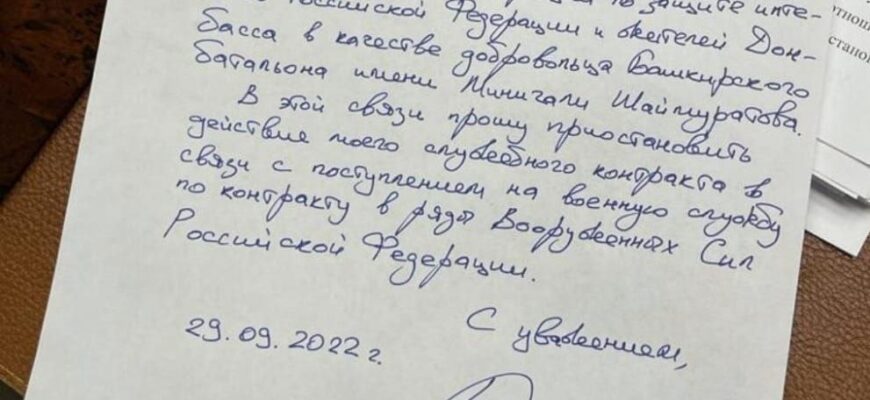 Российской Федерации и жителей Дон-
басса в качестве добровольца Башкирского
батальона имени Минигали Шаймуратова.
В этой связи прошу приостановить
действие моего служебного контракта в
связи с поступлением на военную службу
по контракту в ряды Вооруженных Сил
Российской Федерации.
С уважением,
29.09.2022 г.